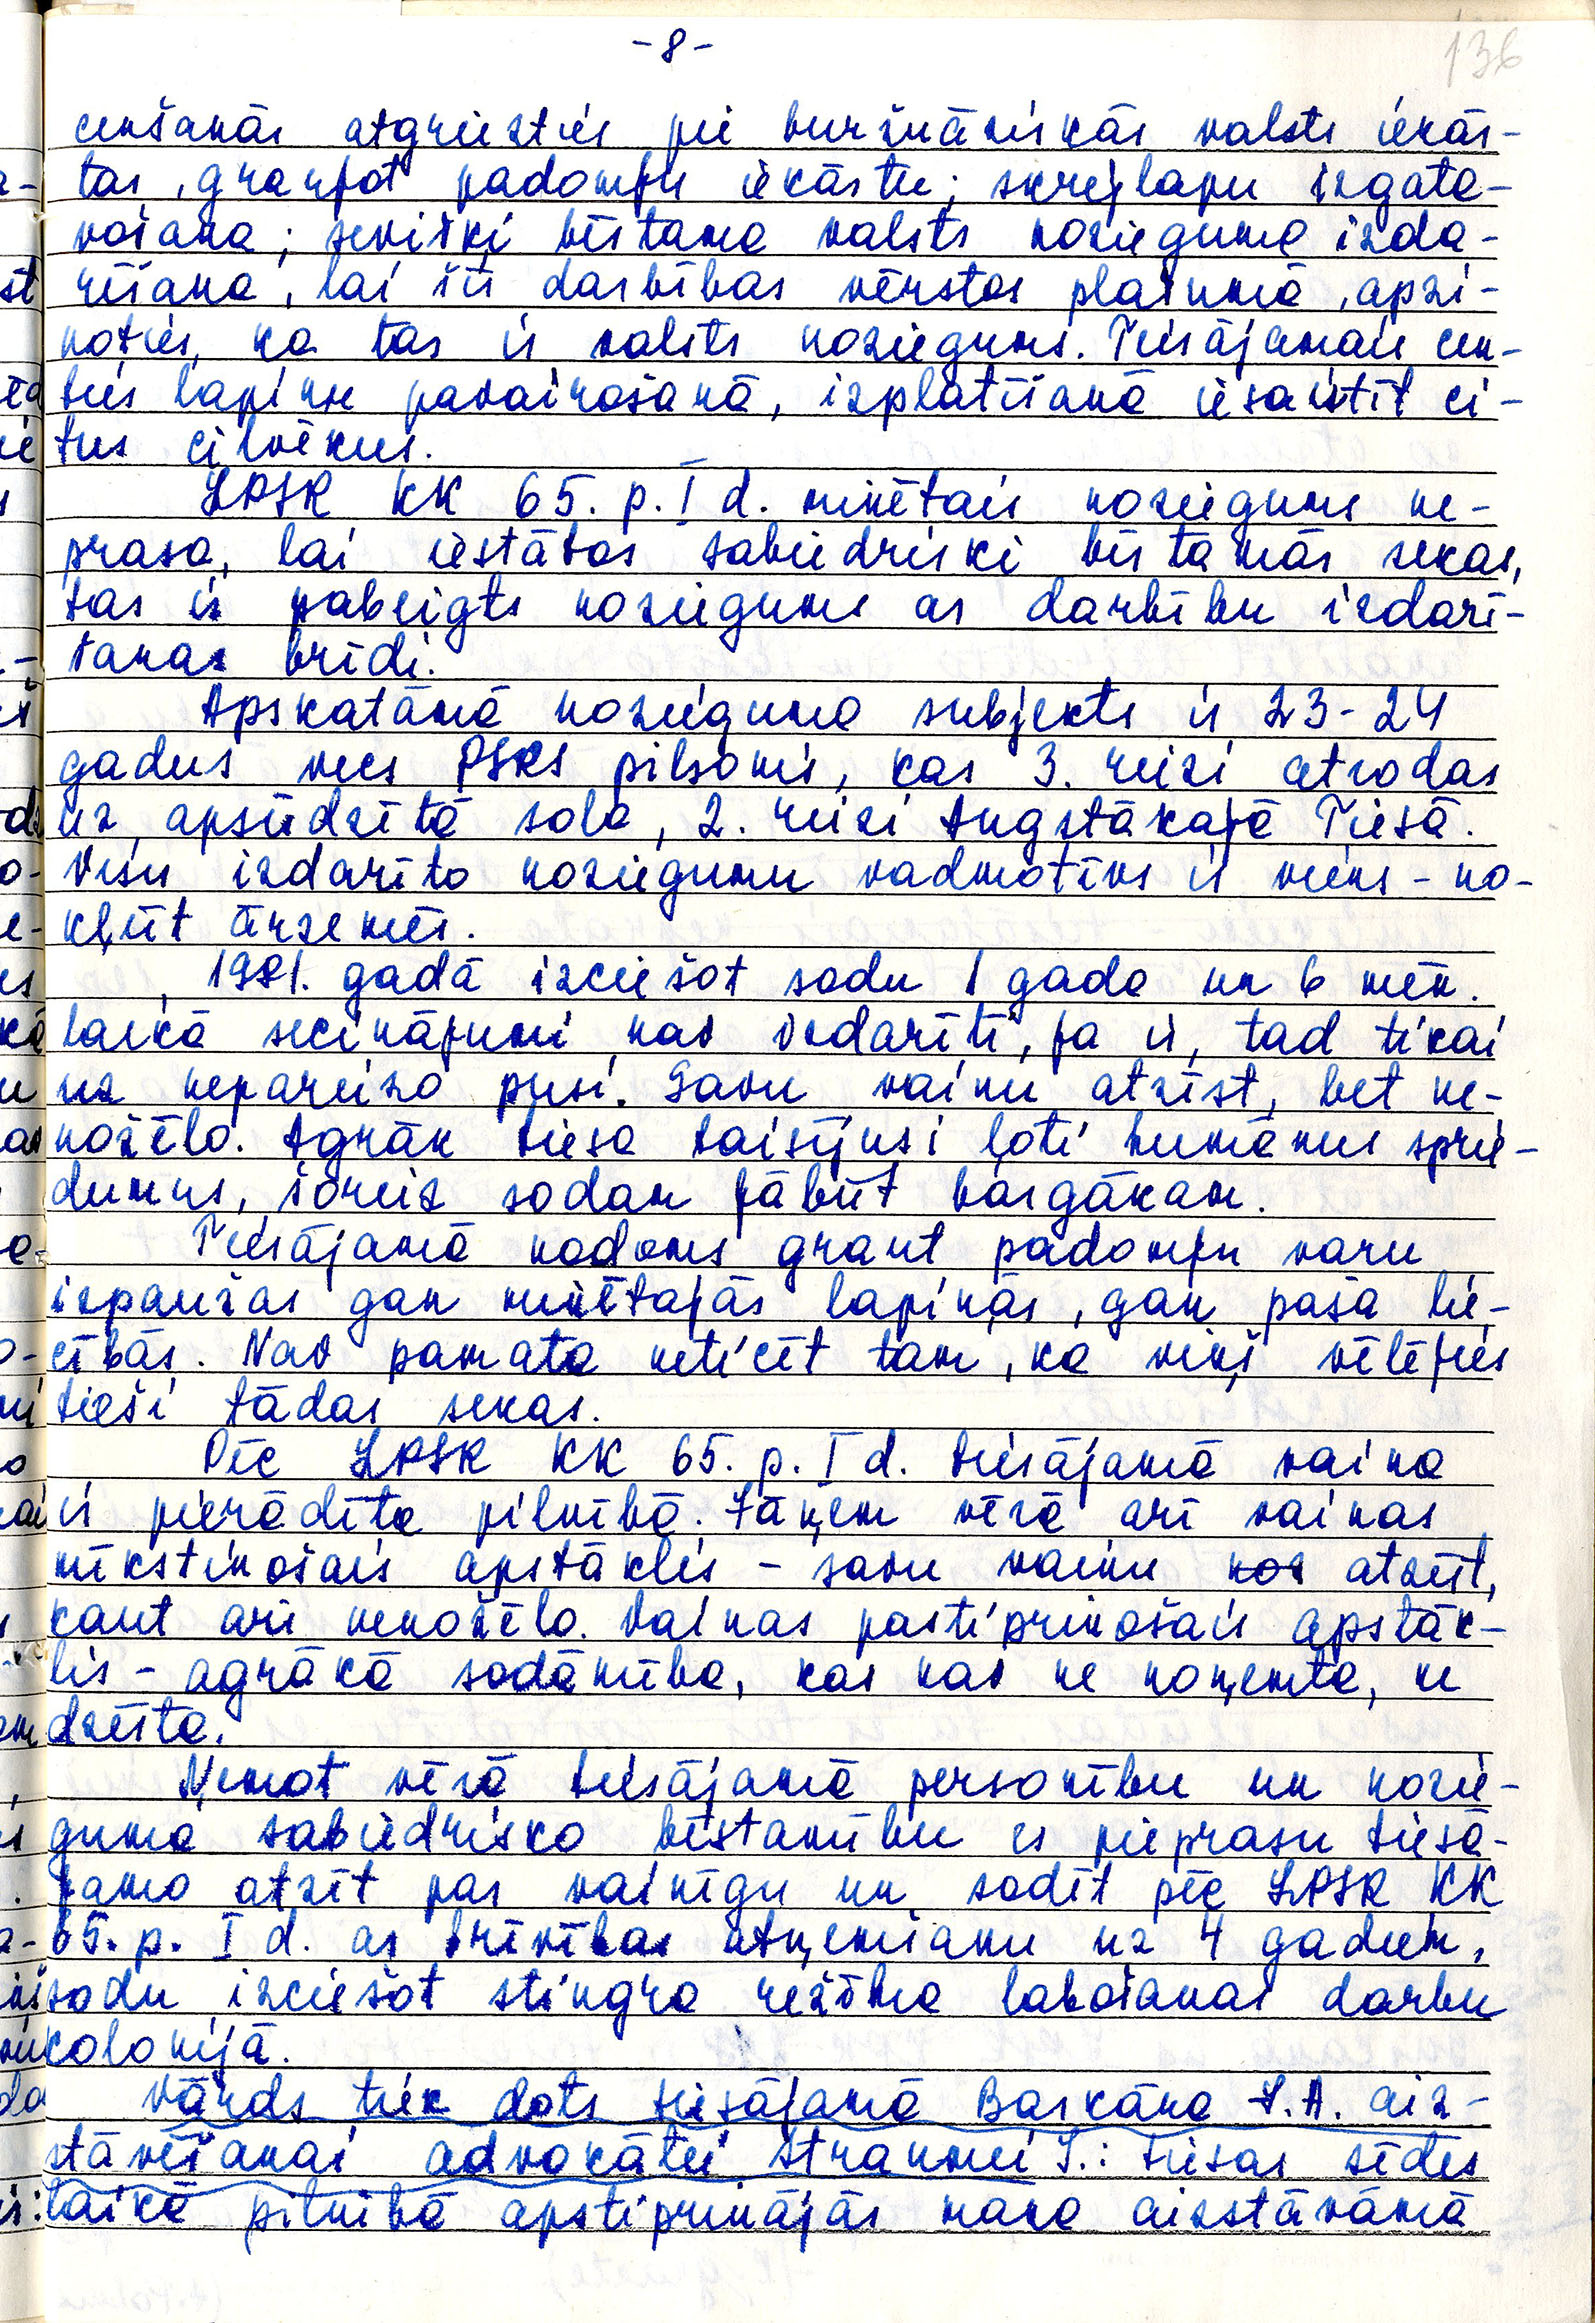 -8-
136
censšanās atgriezties pie buržuāziskās valsts iekār-
tas, graujot padomju iekārtu; skrejlapu izgata-
vošana; sevišķi bīstama valsts nozieguma izda-
rīšana, lai šīs darbības vērstos plašumā, apzi-
noties, ka tas ir valsts noziegums. Tiesājamais cen-
ties lapiņu pavairošanā, izplatīšanā iesaistīt ci-
tus cilvēkus.
LPSR KK 65. p. I d. minētais noziegums ne-
prasa, lai iestātos sabiedriski bīstamās sekas,
tas ir pabeigts noziegums ar darbību izdarī-
šanas brīdi.
Apskatāmā nozieguma subjekts ir 23-24
gadus vecs PSRS pilsonis, kas 3. reizi atrodas
uz apsūdzētā sola, 2. reizi Augstākajā Tiesā.
Visu izdarīto noziegumu vadmotīvs ir viens - no-
kļūt ārzemēs.
1981. gadā izciešot sodu 1 gada un 6 mēn.
laikā secinājumi nav izdarīti, ja ir, tad tikai
uz nepareizo pusi. Savu vainu atzīst, bet ne-
nožēlo. Agrāk tiesa taisījusi ļoti humānus sprie-
dumus, šoreiz sodam jābūt bargākam.
Tiesājamā nodoms graut padomju varu
izpaužas gan minētajās lapiņās, gan paša lie-
cībās. Nav pamata neticēt tam, ka viņš vēlējies
tieši tādas sekas.
Pēc LPSR KK 65. p. I d. tiesājamā vaina
ir pierādīta pilnībā. Jāņem vērā arī vainas
mīkstinošais apstāklis - savu vainu atzīst,
kaut arī nenožēlo. Vainas pastiprinošais apstāk-
lis - agrākā sodāmība, kas nav ne noņemta, ne
dzēsta.
Ņemot vērā tiesājamā personību un nozie-
guma sabiedrisko bīstamību es pieprasu tiesā-
jamo atzīt par vainīgu un sodīt pēc LPSR KK
65. p. I d. ar brīvības atņemšanu uz 4 gadiem,
sodu izciešot stingra režīma labošanas darbu
kolonijā.
Vārds tiek dots tiesājamā Barkāna J.A. aiz-
stāvēšanai advokātei Straumei S.: tiesas sēdes
laikā pilnībā apstiprinājās mana aizstāvāmā